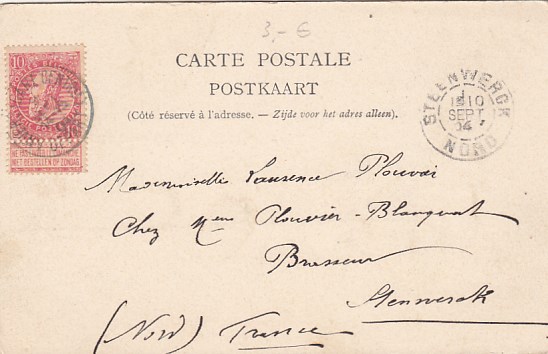 3,-6
CARTE POSTALE
POSTKAART
(Côté réservé à l'adresse. — Zijde voor het adres alleen).
10
NE PAS LIVRER LE DIMANCHE
NIET BESTELLEN OP ZONDAG
STEENWERCK
10
SEPT
04
NORD
Mademoiselle Laurence Plouvoir
Chez Mme Plouvier-Blanquart
Brasseur
Stennverck
(Nord) France